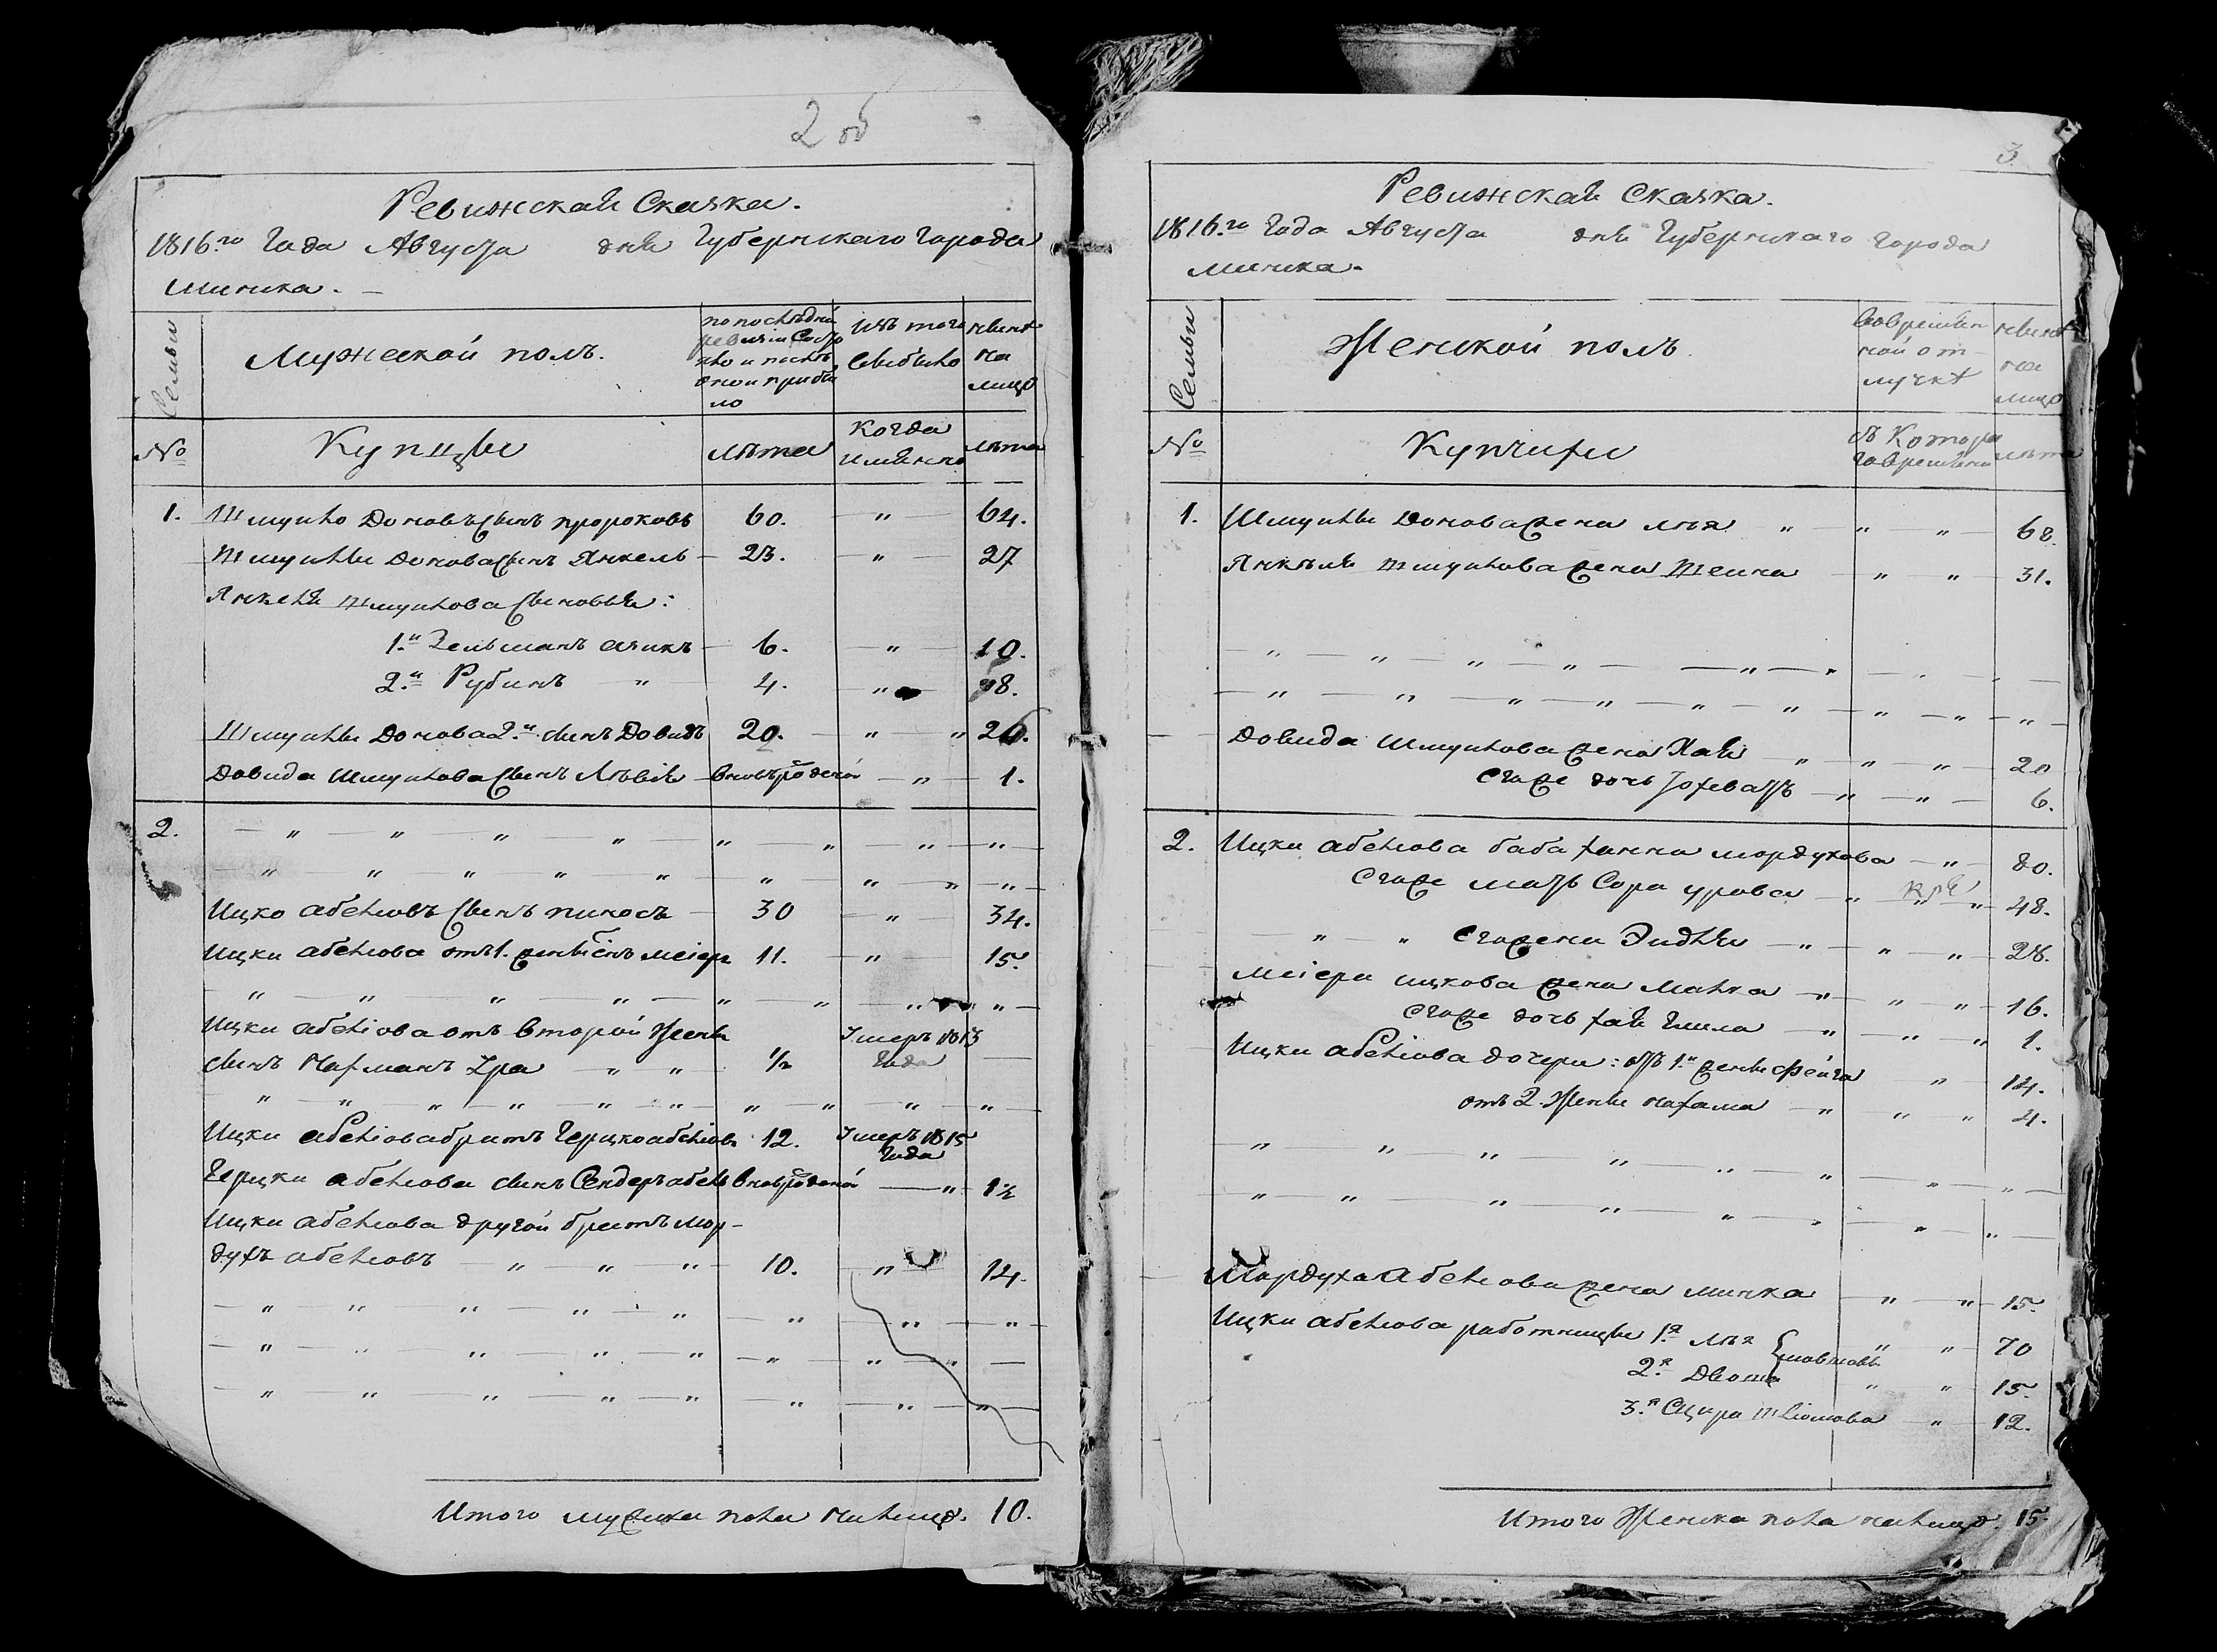 2 об
Ревижская Сказка.
1816.го Года Августа дня Губернскаго Города
Минска. —
Семьи
Мужеской полъ.
по последней
ревизіи состо
яло и после
оной прибы
ло
Изъ того
выбыло
ныне
на
лицо
№
Купцы
лета
Когда
имянно
лета
1. Шмуило Доновъ сынъ пророковъ 60. — " — 64.
Шмуилы Донова сынъ Янкель — 23. — " — 27
Янкеля Шмуилова сыновья:
1.й Зельманъ аизикъ — 6. — " — 10.
2.й Рубинъ — " — 4. — " — 8.
Шмуилы Донова 2.й сынъ Довидъ 20. — " — " 26.
Довида Шмуилова сынъ Лѣвія — вновърожденой — " — 1.
2. — " — " — " — " — " — " — " — " —
— " — " — " — " — " — " — " — " — " —
Ицко абелювъ сынъ пиносъ — 30 — " — 34.
Ицки абелюва отъ 1. жены сынъ меіеръ 11. — " — 15.
— " — " — " — " — " — " — " — " —
Ицки абеліова отъ второй Жены Умеръ 1813
сынъ Нахманъ Ура — " — " — 1/2 Года —
— " — " — " — " — " — " — " — " — " — " —
Ицки абеліова братъ Герцко абеліовъ 12. Умеръ 1815
Года
Герцки абелюва сынъ Сендеръ абель вноврожденой — " — 1 1/2
Ицки абелюва другой братъ мор-
духъ абелювъ — " — " — " — 10. — " — 14.
— " — " — " — " — " — " — " — " —
— " — " — " — " — " — " — " — " — —
— " — " — " — " — " — " — " — " —
Итого мужска пола налицо. 10.
3.
Ревижская Сказка.
1816.го Года Августа дня Губернскаго Города
Минска.
Семьи
Женской полъ
Во времян
ной от-
лучке
ныне
на
лицо
№
Купчихи
съ Котора
го времени
лета
1. Шмуилы Донова жена лея " — " — " — 68.
Янкеля Шмуилова жена Шейна — " — " — 31.
— " — " — " — " — — " — " — " — " —
— " — " — " — " — " — " — " — " — " —
Довида Шмуилова жена Хая " — " — " — 20
Егоже дочь Іохевать — " — " — 6.
2. Ицки абелюва баба ханна мордухова — " — 80.
Егоже мать Сора урова — " — " — " — 48.
— " — " Егожена Эидля — " — " — " — 28.
Меіера ицкова жена Малка — " — " — " — 16.
Егоже дочь хая Гишла — " — " — " 1.
Ицки абеліова дочери: отъ 1.й жены Фейга — " — 14.
отъ 2. Жены нахама — " — " — " 4.
— " — " — " — " — " — " — " — " —
— " — " — " — " — " — " — " — " —
Мордуха Абелюва жена минка — " — " — 15.
Ицки абелюва работницы 1.я лея " — " — 70
2.я Двося " — " — 15.
3.я Сцира Шліомова — " — 12.
Итого Женска пола налицо. 15.